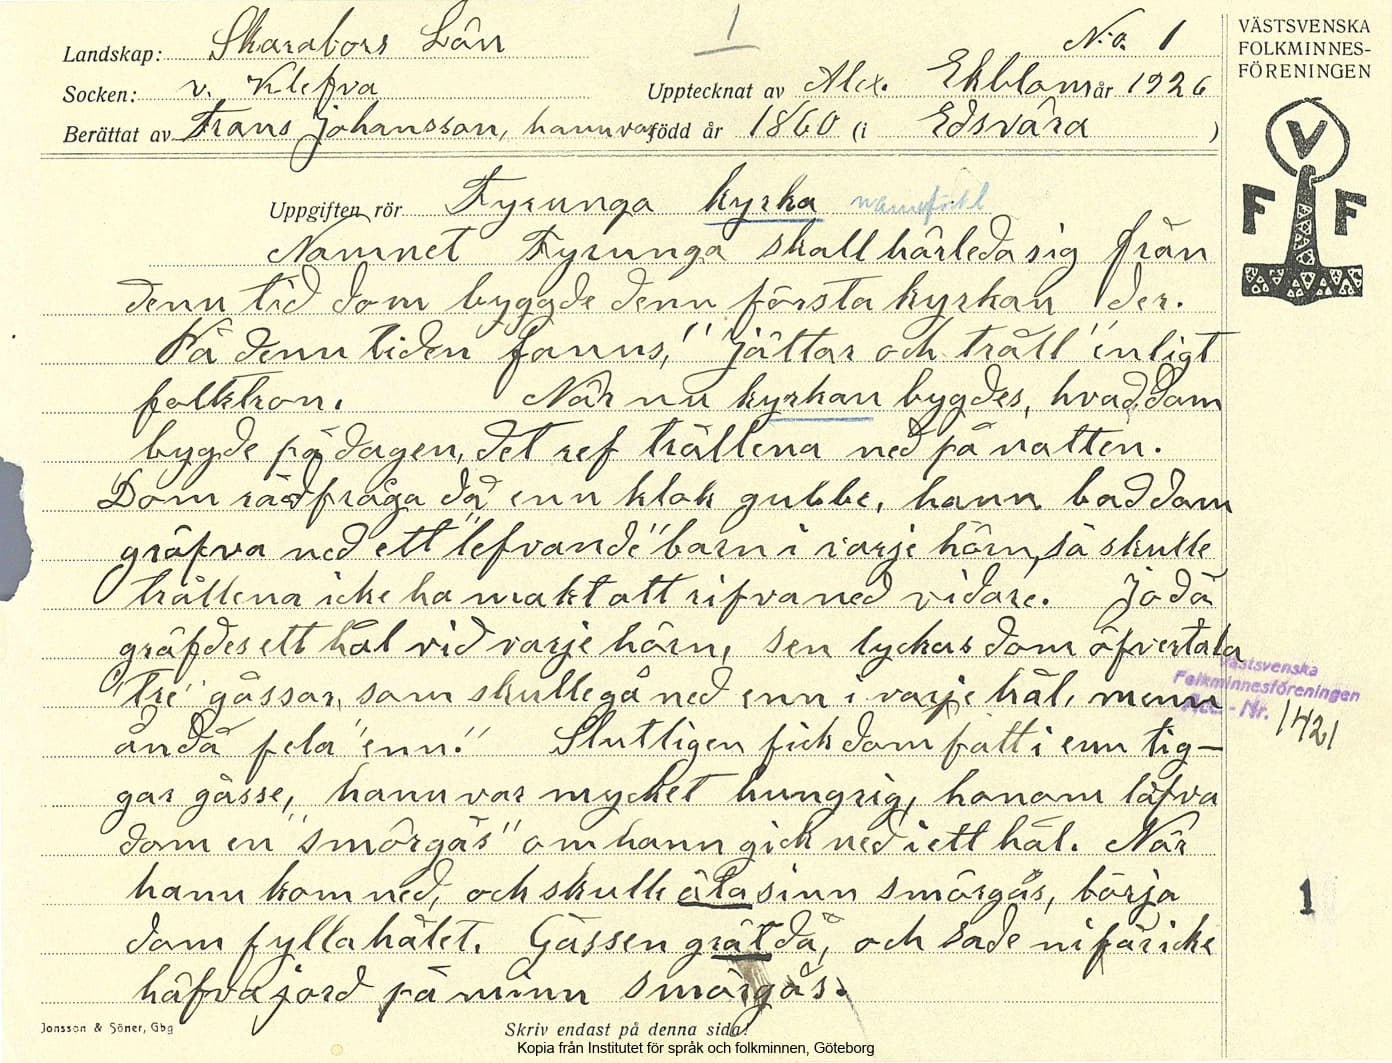 1
Landskap: Skarabors Län No. 1
Socken: v. Klefva Upptecknat av Alex. Ekblom år 1926
Berättat av Frans Johansson, hann var född år 1860 (i Edsvära )
VÄSTSVENSKA
FOLKMINNES-
FÖRENINGEN
V
F F
Uppgiften rör Fyrunga kyrka
Namnet Fyrunga skall härleda sig från
denn tid dom byggde denn första kyrkan der.
På denn tiden fanns, "jättar och träll" enligt
folktron. När nu kyrkan bygdes, hvad dom
bygde på dagen, det ref trällena ned på natten.
Dom rådfråga då enn klok gubbe, hann bad dom
gräfva ned ett "lefvande" barn i varje hörn, så skulle
trällena icke ha makt att rifva ned vidare. Jo då
gräfdes ett hål vid varje hörn, sen lyckas dom öfvertala
"tre" gåssar, som skulle gå ned enn i varje hål, menn
ändå fela "enn." Slutligen fick dom fatt i enn tig-
gar gåsse, hann var mycket hungrig, honom låfva
dom en "smörgås" om hann gick ned i ett hål. När
hann kom ned, och skulle äta sinn smörgås, börja
dom fylla hålet. Gåssen grät då, och sade ni får icke
häfva jord på minn smörgås.
Västsvenska
Folkminnesföreningen
Acc.-Nr. 1421
1
Jonsson & Söner, Gbg
Skriv endast på denna sida!
Kopia från Institutet för språk och folkminnen, Göteborg